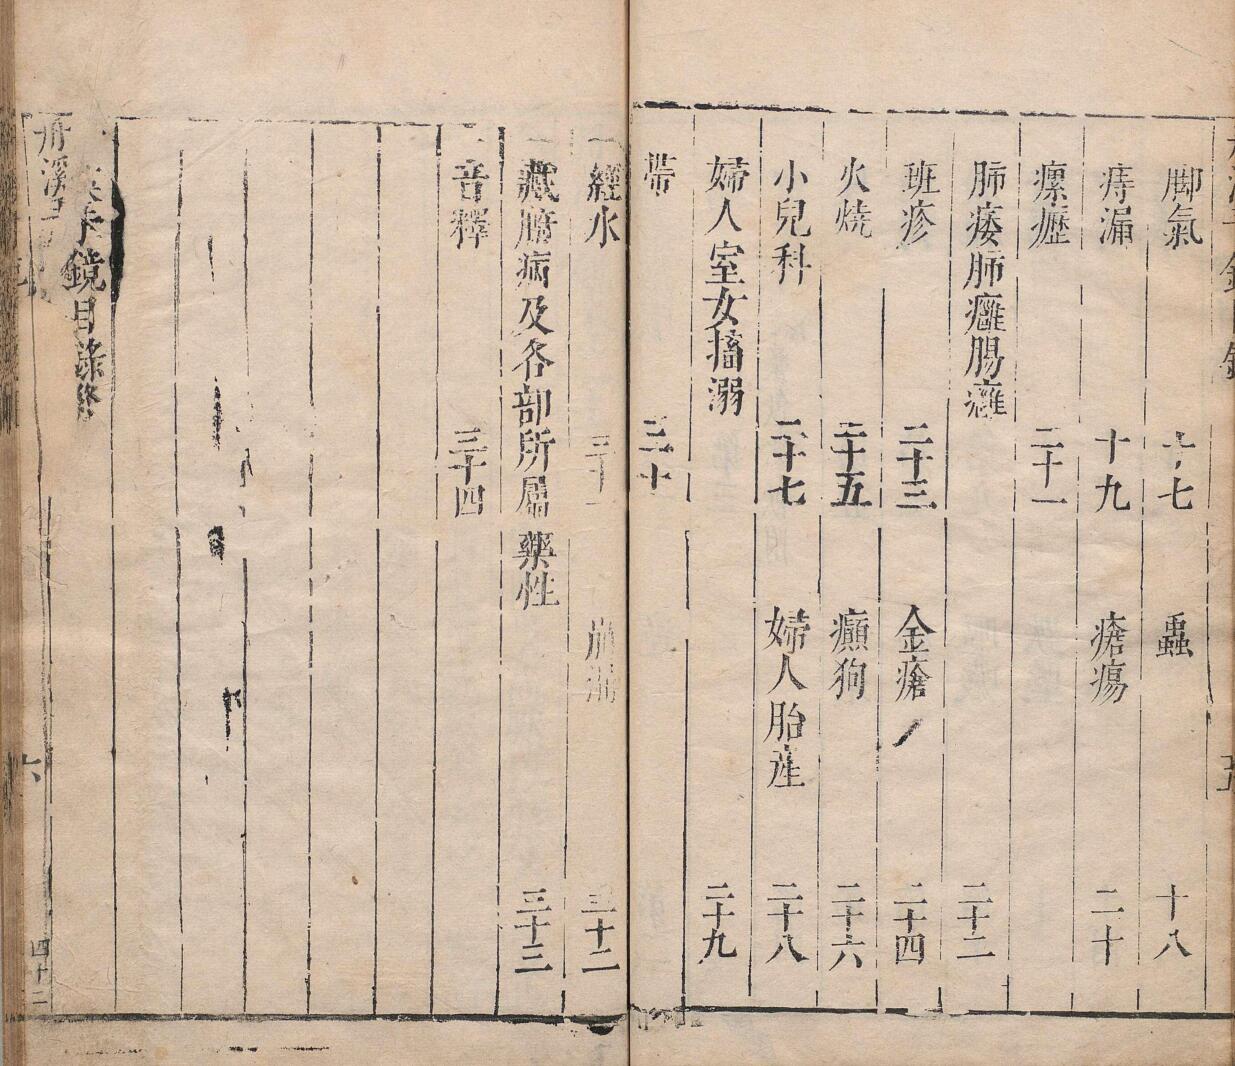 脚氣 十七 蟲 十八
痔漏 十九 瘡瘍 二十
瘰癧 二十一
肺痿肺癰腸癰 二十二
班疹 二十三 金瘡 二十四
火燒 二十五 癲狗 二十六
小兒科 二十七 婦人胎產 二十八
婦人室女搐溺 二十九
帶 三十
經水 三十一 崩漏 三十二
藏腑病及各部所屬藥性 三十三
音釋 三十四
鏡目錄終
丹溪
六
四十二